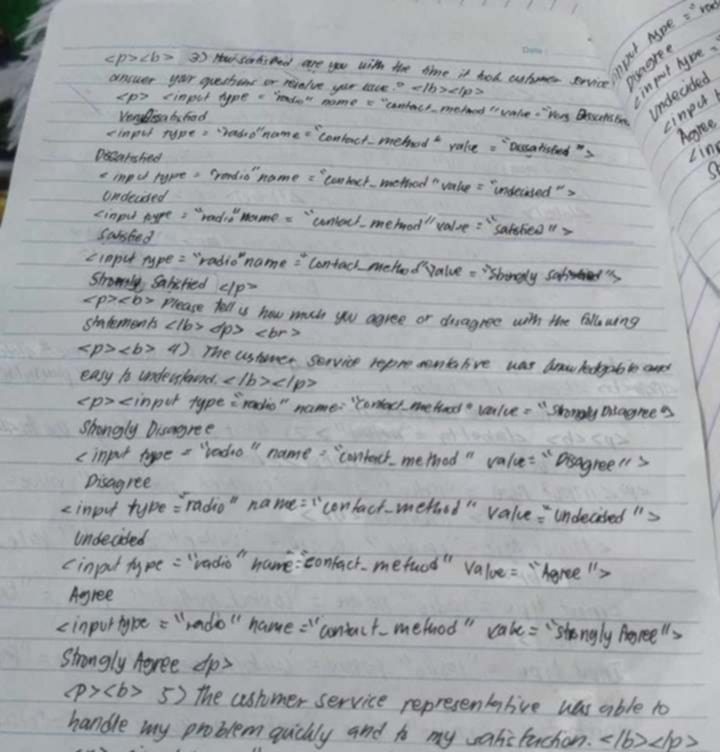 Date:
<p><b> 3) How satisfied are you with the time it took customer service
answer your questions or resolve your issue? </b></p>
<p> <input type = "radio" name = "contact_method" value = "Very Dissatisfied
Very Dissatisfied
<input type = "radio" name = "contact_method" value = "Dissatisfied">
Dissatisfied
<input type = "radio" name = "contact_method" value = "undecided">
Undecided
<input type = "radio" name = "contact_method" value = "satisfied">
Satisfied
<input type = "radio" name = "contact_method" value = "Strongly satisfied">
Strongly Satisfied </p>
<p><b> Please tell us how much you agree or disagree with the following
statements </b> </p> <br>
<p><b> 4) The customer service representative was knowledgable and
easy to understand. </b></p>
<p><input type = "radio" name = "contact_method" value = "Strongly Disagree">
Strongly Disagree
<input type = "radio" name = "contact_method" value = "Disagree">
Disagree
<input type = "radio" name = "contact_method" value = "Undecided">
Undecided
<input type = "radio" name = "contact_method" value = "Agree">
Agree
<input type = "radio" name = "contact_method" value = "Strongly Agree">
Strongly Agree </p>
<p><b> 5) The customer service representative was able to
handle my problem quickly and to my satisfaction. </b></p>
input type = "rad
Disagree
<input type =
Undecided
<input t
Agree
<inp
St